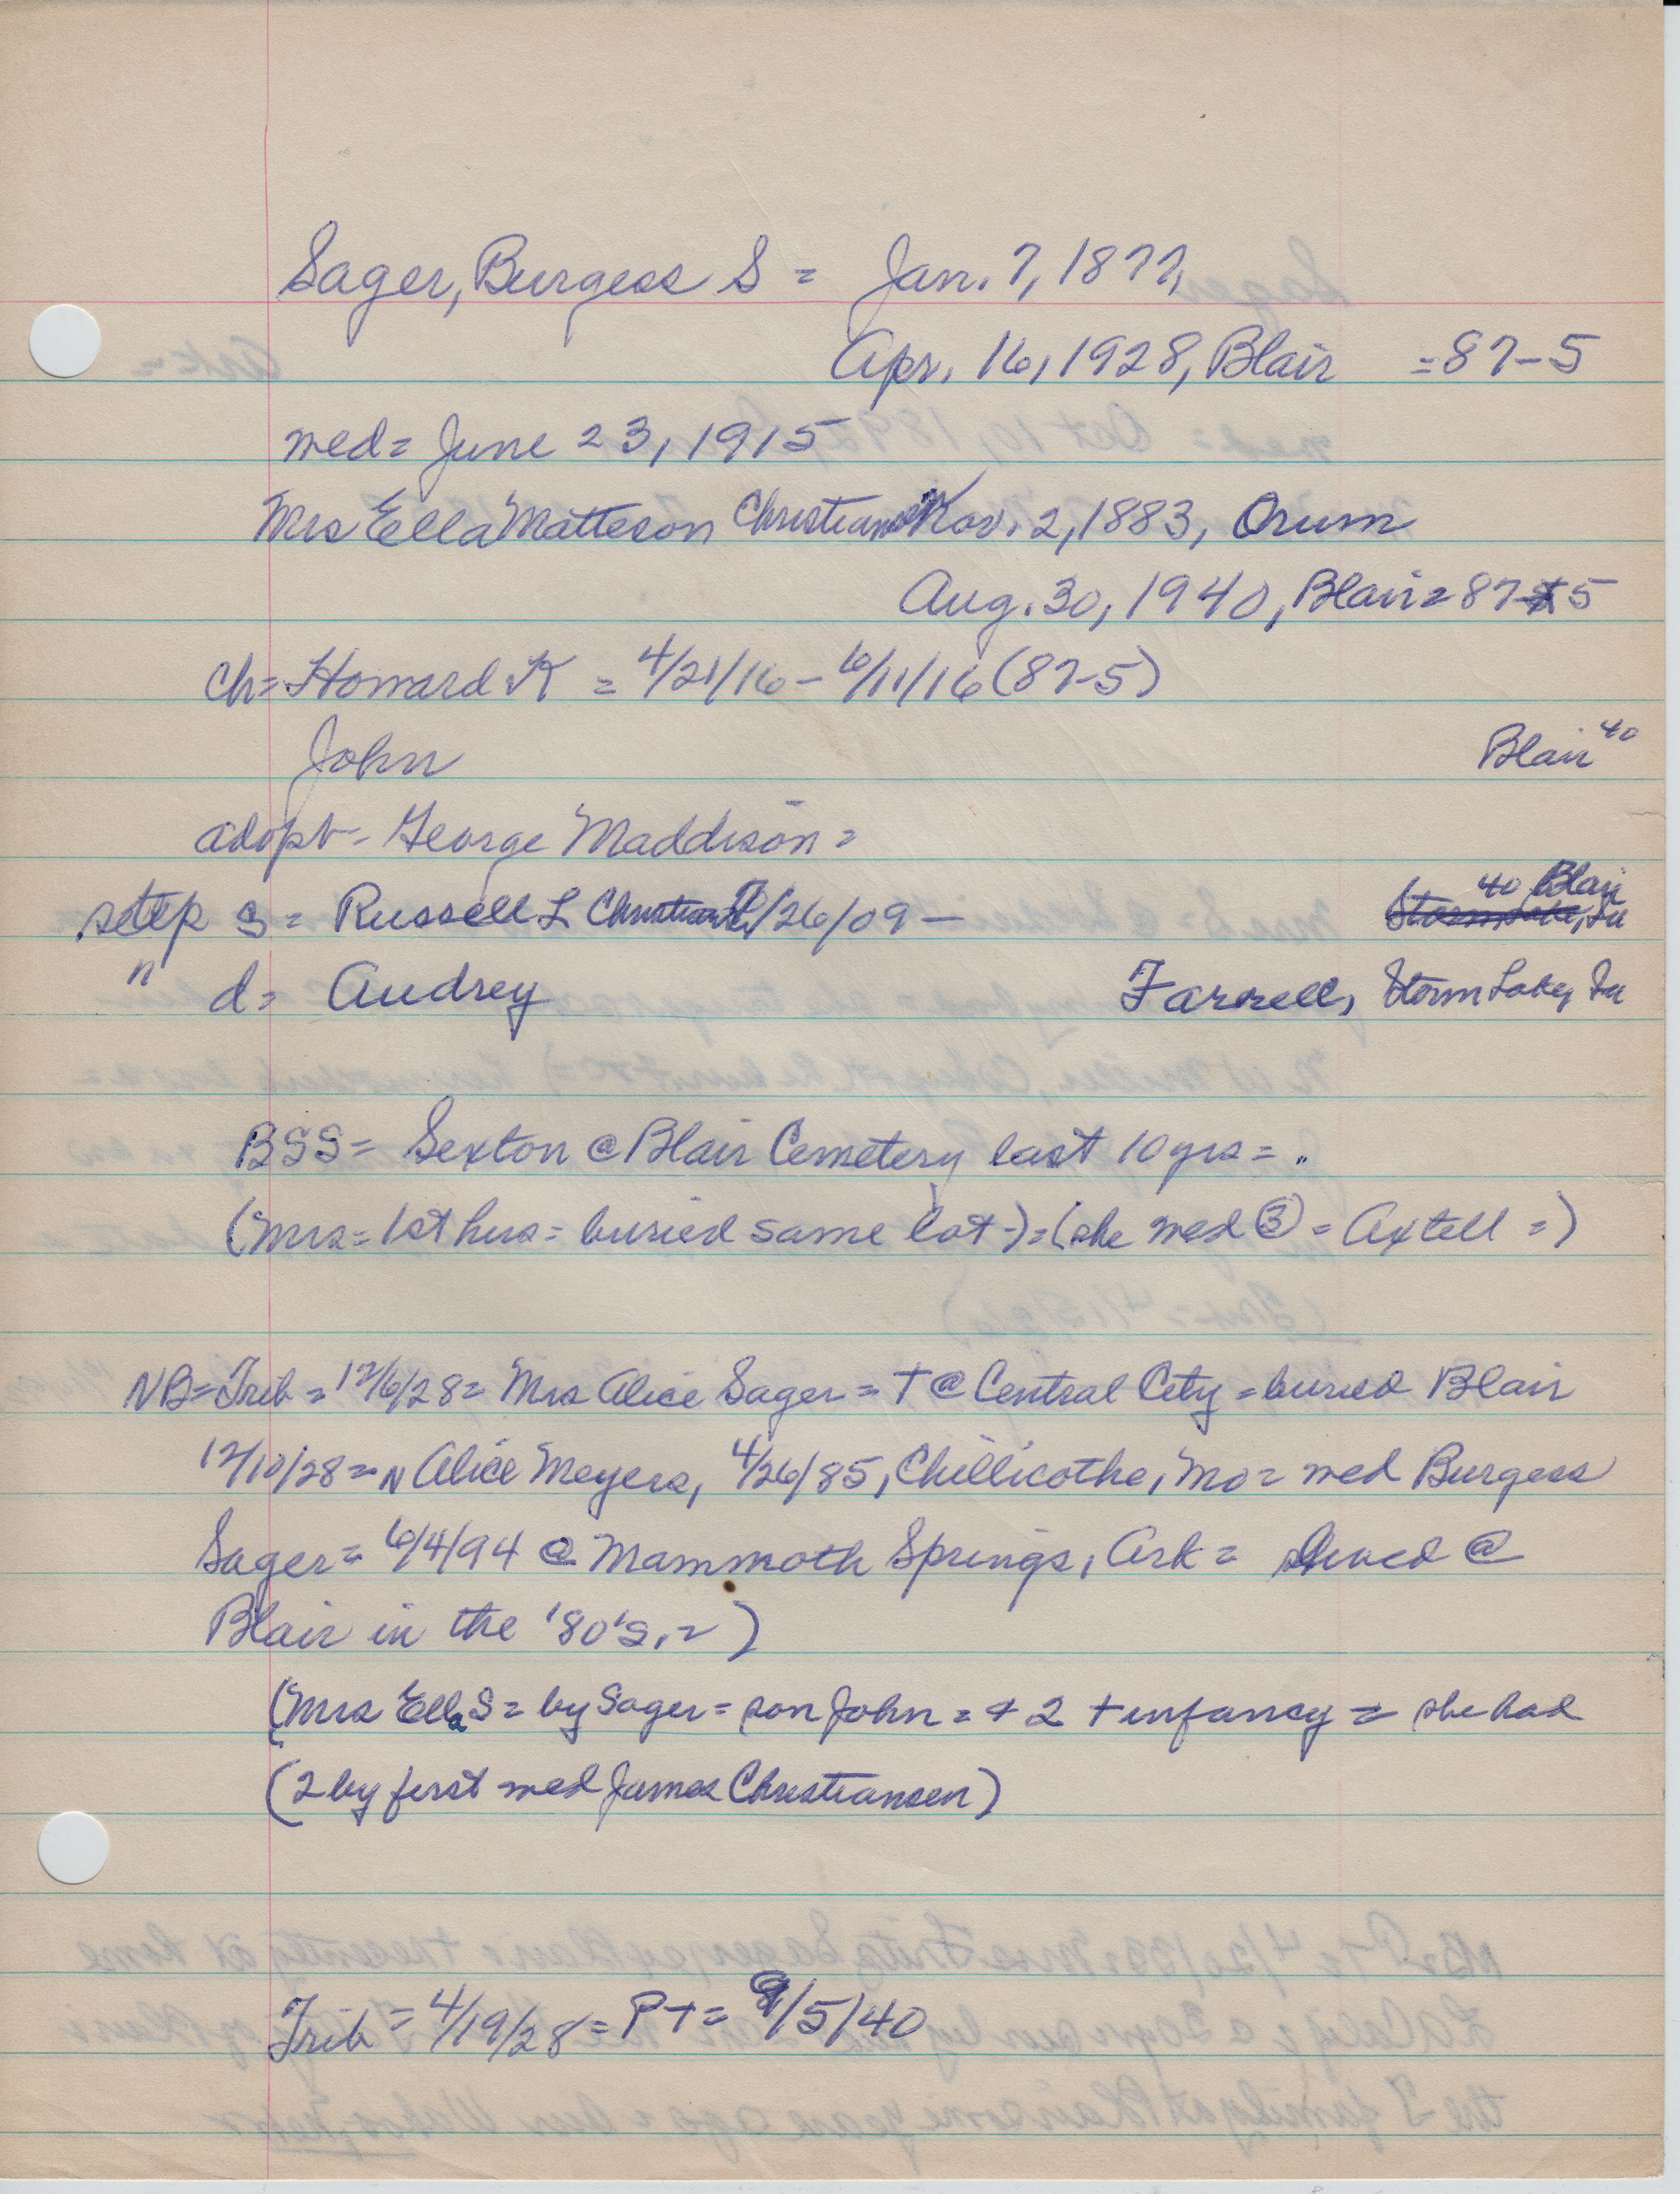 Sager, Burgess S = Jan. 7, 1877,
Apr. 16, 1928, Blair = 87-5
med = June 23, 1915
Mrs Ella Matteson Christiansen Nov. 2, 1883, Orum
Aug. 30, 1940, Blair = 87-5
ch = Howard K = 4/21/16 - 6/11/16 (87-5)
John Blair 40
adopt - George Maddison =
40 Blair
step s = Russell L Christiansen /26/09 - Storm Lake, Ia
" d = Audrey Farrell, Storm Lake, Ia
BSS = Sexton @ Blair Cemetery last 10 yrs = ..
(Mrs = 1st hus = buried same lot -) = (she med ③ = Axtell =)
NB = Trib = 12/6/28 = Mrs Alice Sager = † @ Central City = buried Blair
12/10/28 = N Alice Meyers, 4/26/85, Chillicothe, Mo = med Burgess
Sager = 6/4/94 @ Mammoth Springs, Ark = lived @
Blair in the '80's. = )
(Mrs Ella S = by Sager = son John = + 2 † infancy = she had
(2 by first med James Christiansen)
Trib = 4/19/28 = PT = 9/5/40